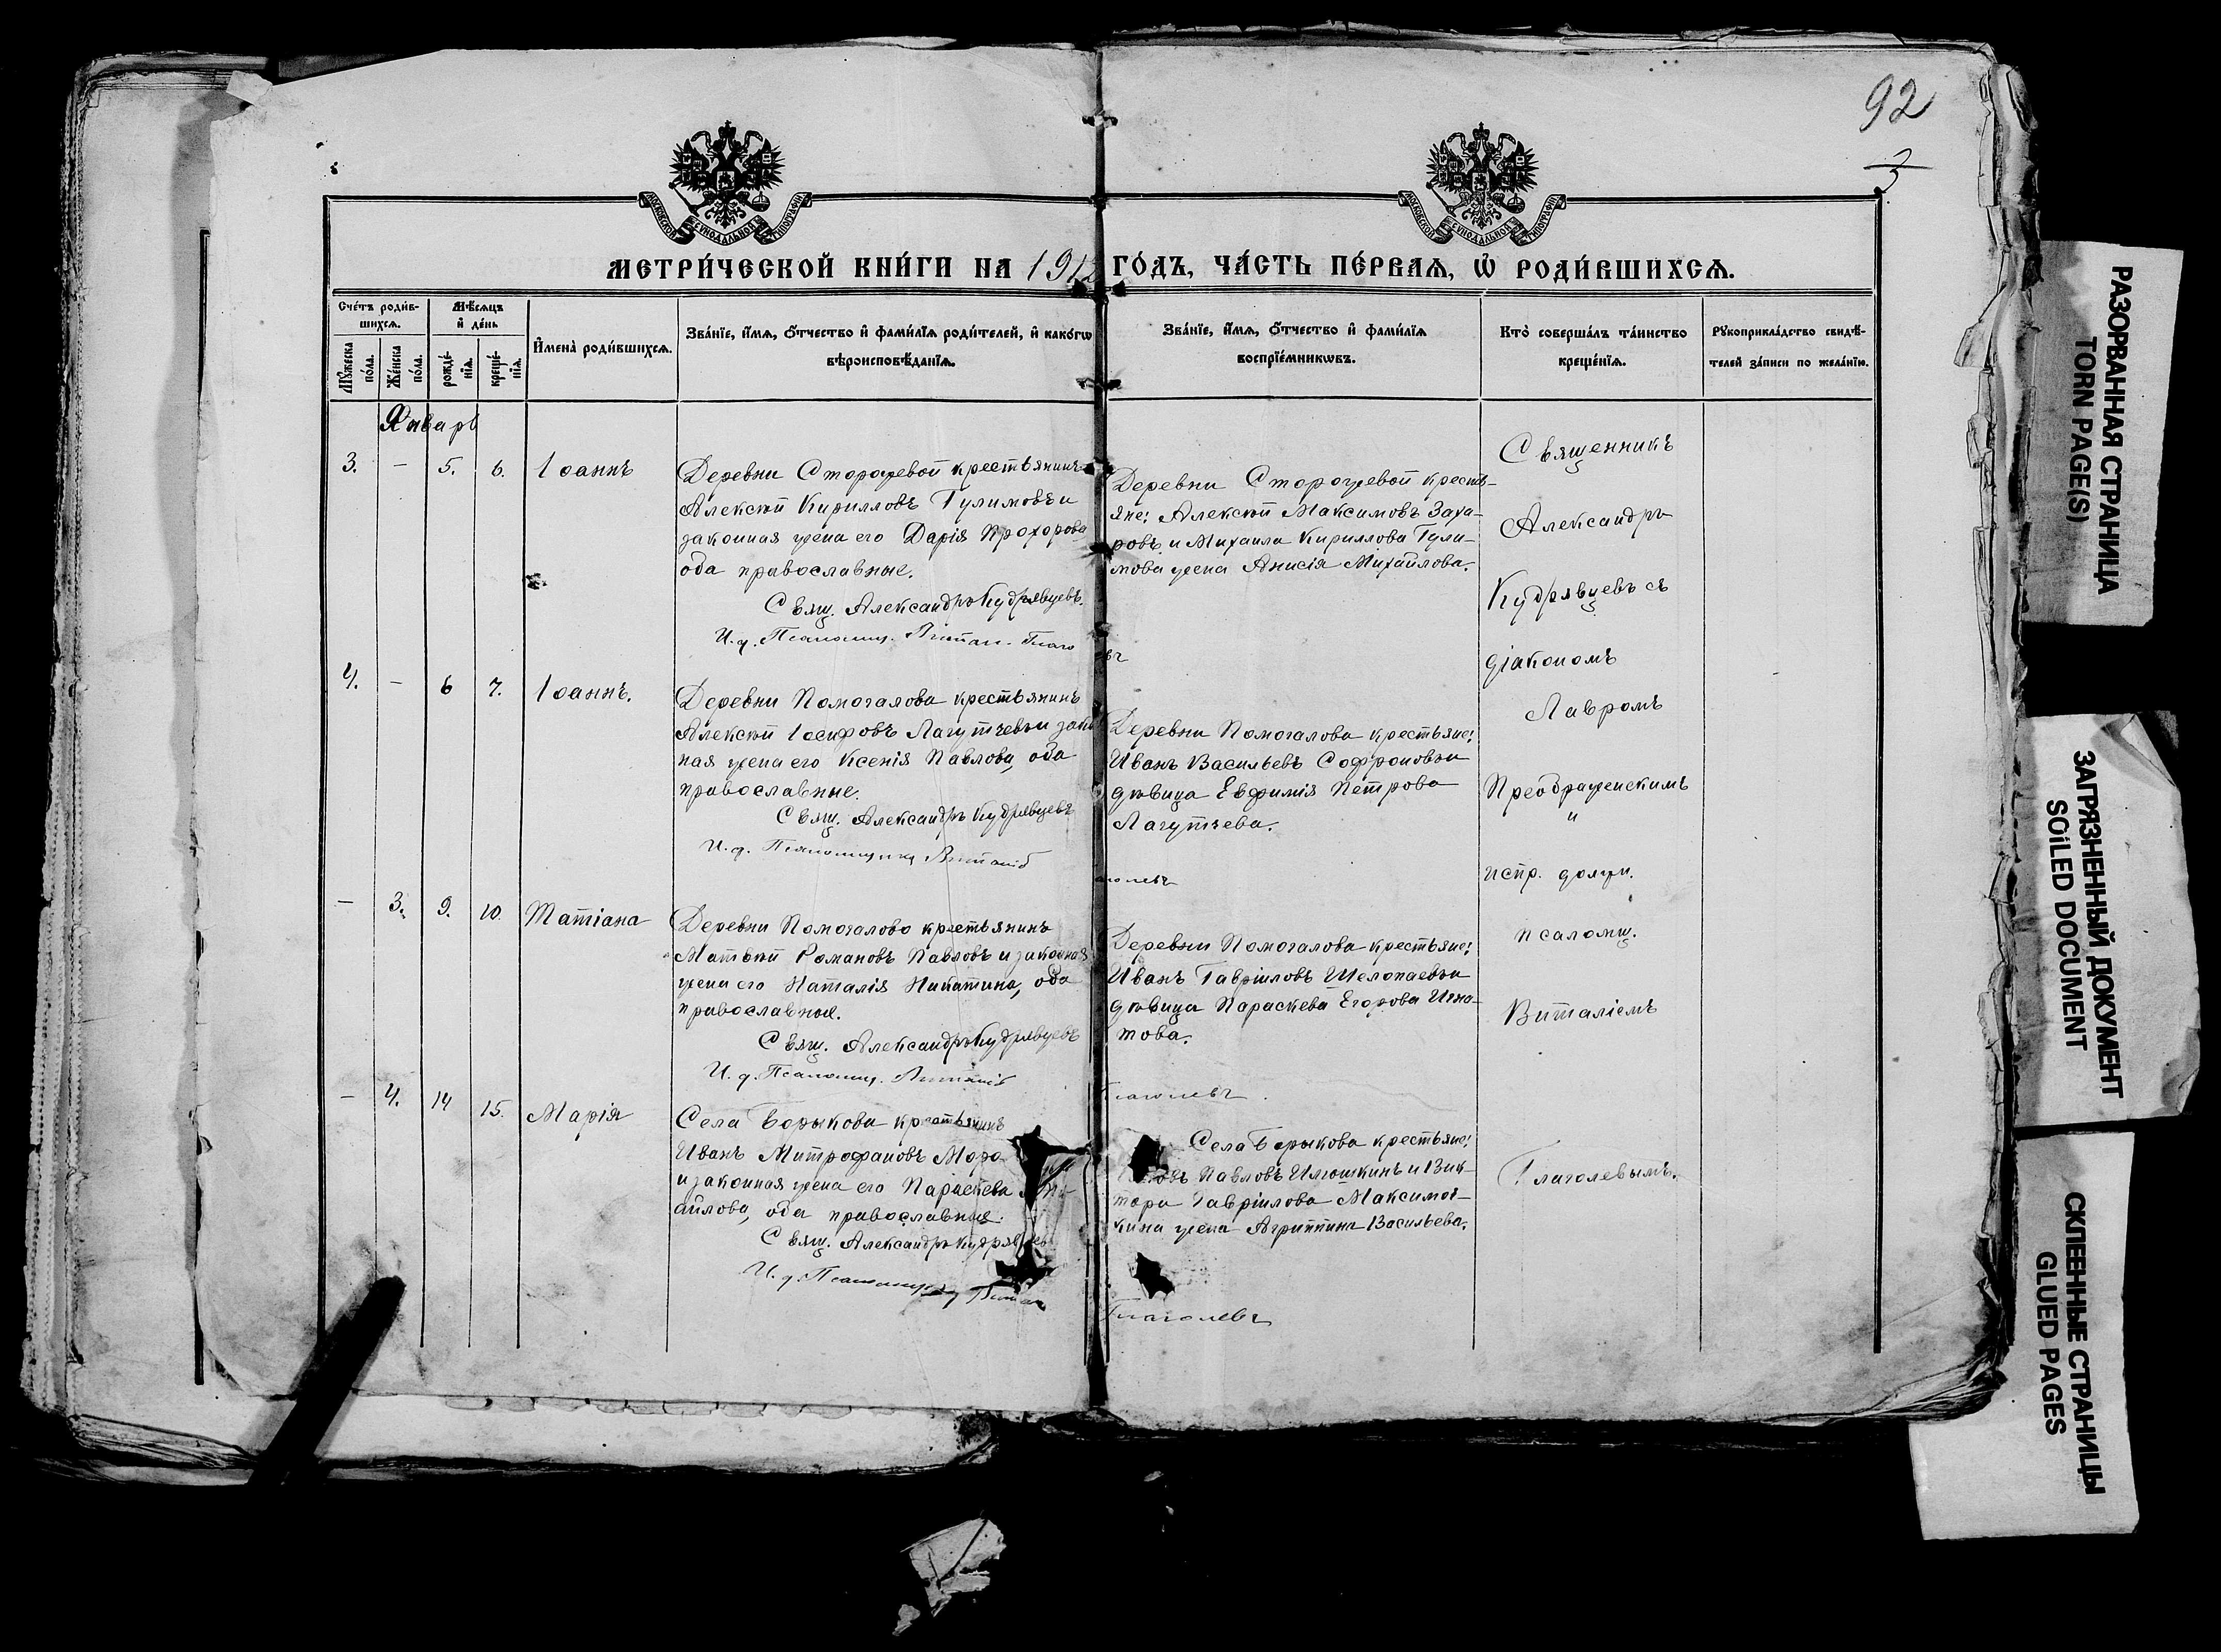 92
3
МОСКОВСКОЙ СѴНОДАЛЬНОЙ ТИПОГРАФІИ
МОСКОВСКОЙ СѴНОДАЛЬНОЙ ТИПОГРАФІИ
МЕТРИ́ЧЕСКОЙ КНИ́ГИ НА 1912 ГО́ДЪ, ЧА́СТЬ ПЕ́РВАѦ, Ѡ҆ РОДИ́ВШИХСѦ.
Сче́тъ роди́в-
шихсѧ.
Мѣ́сѧцъ
и҆ де́нь
Мꙋ́жеска по́ла.
Же́нска по́ла.
рожде́-
нїѧ.
креще́-
нїѧ.
И҆мена̀ роди́вшихсѧ.
Зва́нїе, и҆́мѧ, ѻ҆́тчество и҆ фами́лїѧ роди́телей, и҆ како́гѡ
вѣроисповѣ́данїѧ.
Зва́нїе, и҆́мѧ, ѻ҆́тчество и҆ фами́лїѧ
воспрїе́мникѡвъ.
Кто̀ соверша́лъ та́инство
креще́нїѧ.
Рꙋкоприкла́дство свидѣ́-
телей за́писи по жела́нїю.
Январь
3. — 5. 6. Іоаннъ
Деревни Сторожевой крестьянинъ
Алексѣй Кирилловъ Тулимовъ и
законная жена его Дарія Прохорова
оба православные.
Свящ. Александръ Кудрявцевъ.
И. д. Псаломщ. Витал. Глаго
евъ
Деревни Сторожевой кресть-
яне: Алексѣй Максимовъ Заха-
ровъ и Михаила Кириллова Тули-
мова жена Анисія Михайлова.
4. — 6 7. Іоаннъ.
Деревни Помогалова крестьянинъ
Алексѣй Іосифовъ Лагутчевъ и зако
ная жена его Ксенія Павлова, оба
православные.
Свящ. Александръ Кудрявцевъ
И. д. Псаломщика Виталій
голевъ
Деревни Помогалова крестьяне:
Иванъ Васильевъ Софроновъ и
дѣвица Евфимія Петрова
Лагутчева.
— 3. 9. 10. Татіана
Деревни Помогалова крестьянинъ
Матвѣй Романовъ Павловъ и законная
жена его Наталія Никитина, оба
православные.
Свящ. Александръ Кудрявцевъ
И. д. Псаломщ. Виталій
Глаголевъ
Деревни Помогалова крестьяне:
Иванъ Гавріиловъ Шелопаевъ и
дѣвица Параскева Егорова Игна-
това.
— 4. 14 15. Марія
Села Борыкова крестьянинъ
Иванъ Митрофановъ
и законная жена его Параскева
айлова, оба православные.
Свящ. Александръ Кудрявцевъ
И. д. Псаломщика Витал
Глаголевъ
Села Борыкова крестьяне:
Павловъ Илюшкинъ и Вик-
тора Гавріилова Максимоч-
кина жена Агриппина Васильева.
Священникъ
Александръ
Кудрявцевъ съ
діакономъ
Лавромъ
Преображенскимъ
и
испр. должн.
псаломщ.
Виталіемъ
Глаголевымъ.
РАЗОРВАННАЯ СТРАНИЦА
TORN PAGE(S)
ЗАГРЯЗНЕННЫЙ ДОКУМЕНТ
SOILED DOCUMENT
СКЛЕЕННЫЕ СТРАНИЦЫ
GLUED PAGES